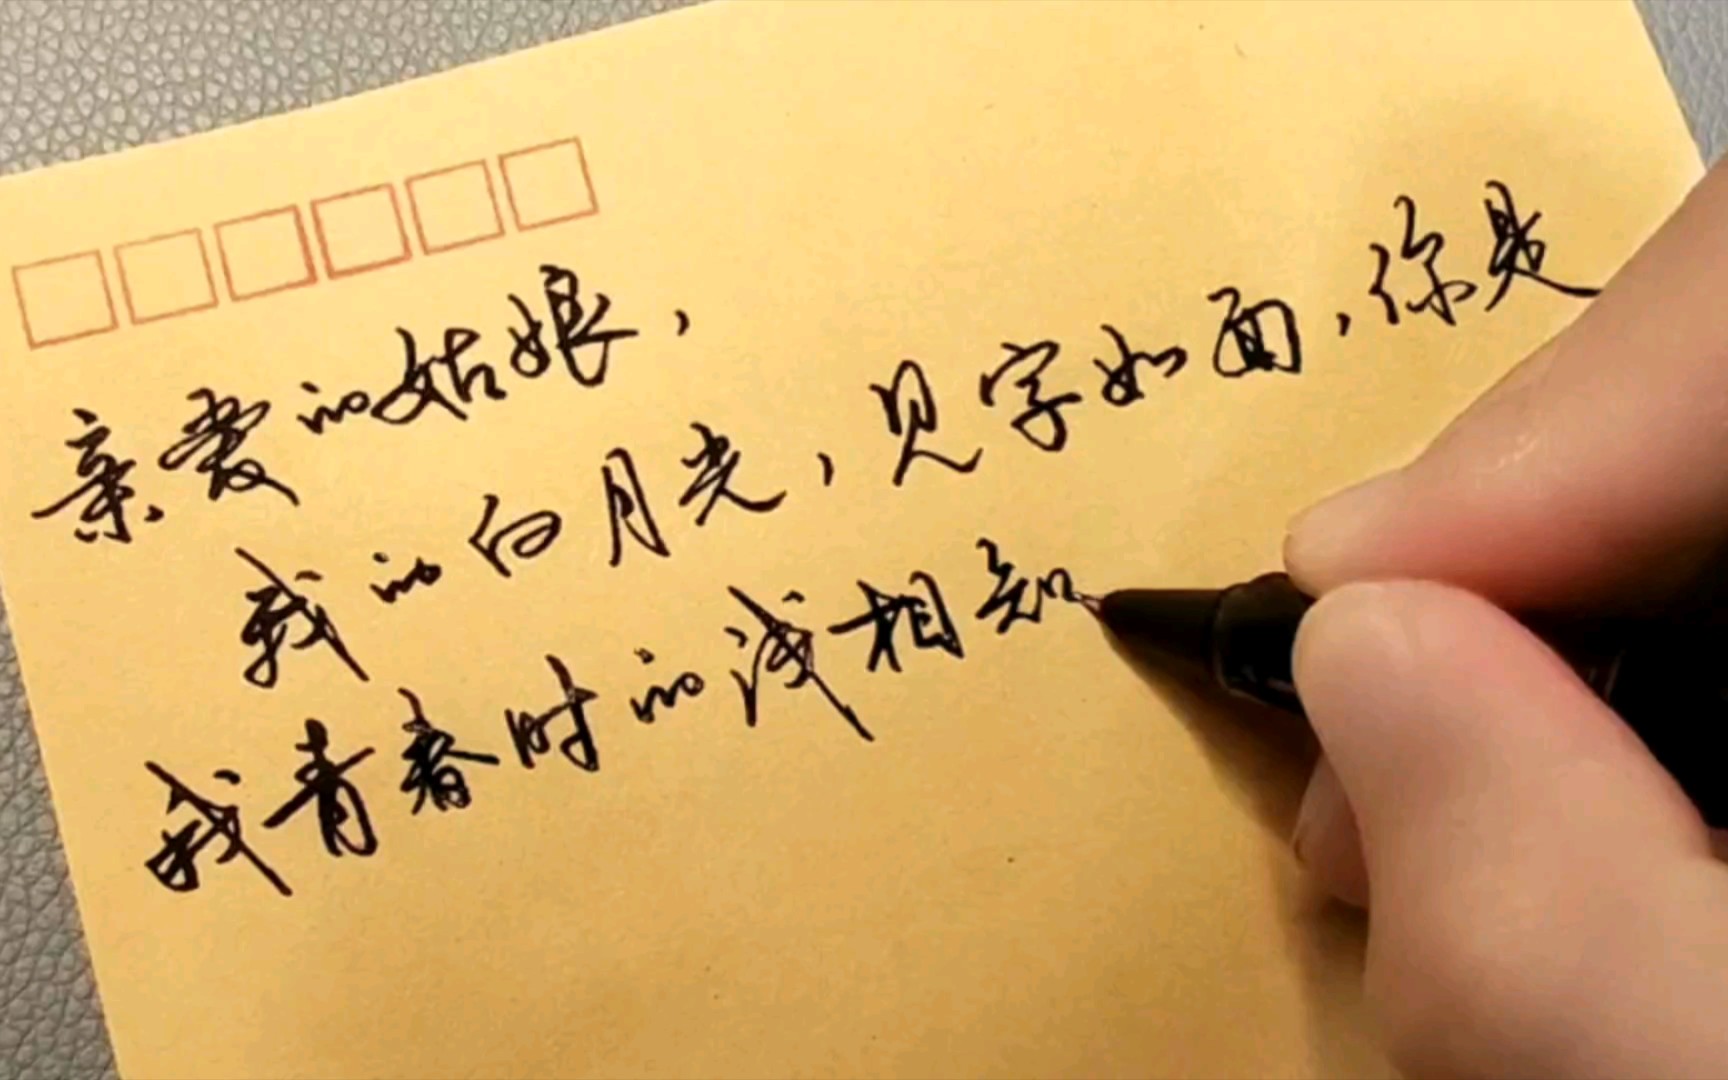 亲爱的姑娘，
我的白月光，见字如面，你是
我青春时的浅相知